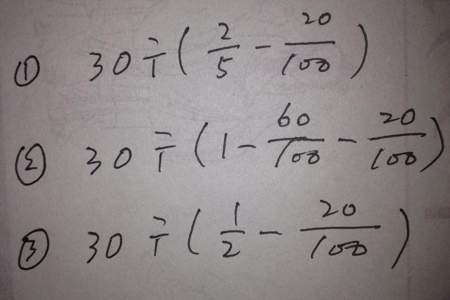 ① 30 ÷ ( 2/5 - 20/100 )
② 30 ÷ ( 1 - 60/100 - 20/100 )
③ 30 ÷ ( 1/2 - 20/100 )